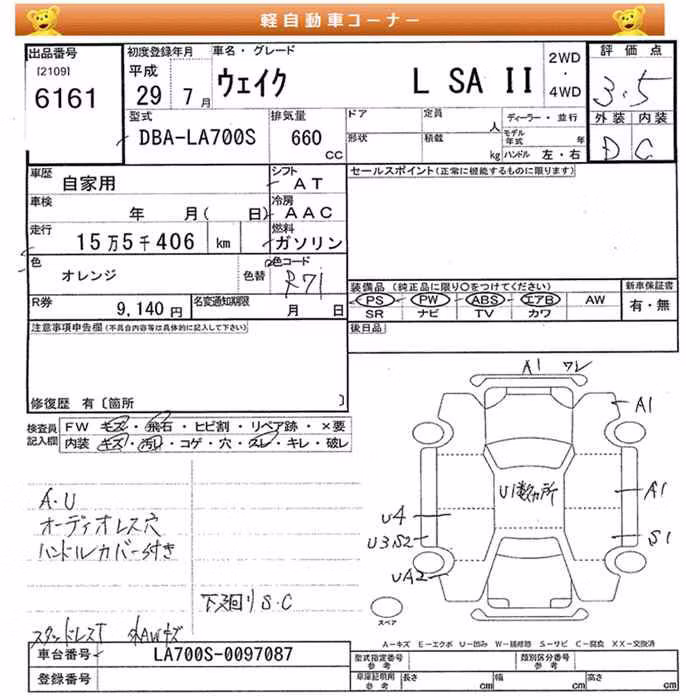 軽自動車コーナー
出品番号
[2109]
6161
初度登録年月
平成
29 7月
車名・グレード
ウェイク L SA II
2WD
・
4WD
評価点
3.5
外装 内装
D C
型式
DBA-LA700S
排気量
660
CC
ドア
形状
定員
人
積載
kg
ディーラー・並行
モデル年式 年
ハンドル 左・右
車歴
自家用
シフト
AT
車検
年 月( 日)
冷房
AAC
走行
15万5千406 km
燃料
ガソリン
色
オレンジ
色替
色コード
R71
R券
9,140円
名変通知期限
月 日
セールスポイント(正常に機能するものに限ります)
装備品 (純正品に限り○をつけてください)
PS PW ABS エアB AW
SR ナビ TV カワ
新車保証書
有・無
後日品
注意事項申告欄(不具合内容等は具体的に記入して下さい)
修復歴 有〔箇所 〕
検査員
記入欄
FW キズ・飛石・ヒビ割・リペア跡・×要
内装 キズ・汚れ・コゲ・穴・スレ・キレ・破レ
A・U
オーディオレス穴
ハンドルカバー付き
下廻りS.C
スタッドレスT
A1 ワレ
A1
U1数ヵ所
A1
U4
U3S2
S1
UA2
スペア
A-キズ E-エクボ U-凹み W-補修跡 S-サビ C-腐食 XX-交換済
車台番号
LA700S-0097087
登録番号
型式指定番号
参考
類別区分番号
参考
車庫証明用
参考
長さ cm 幅 cm 高さ cm